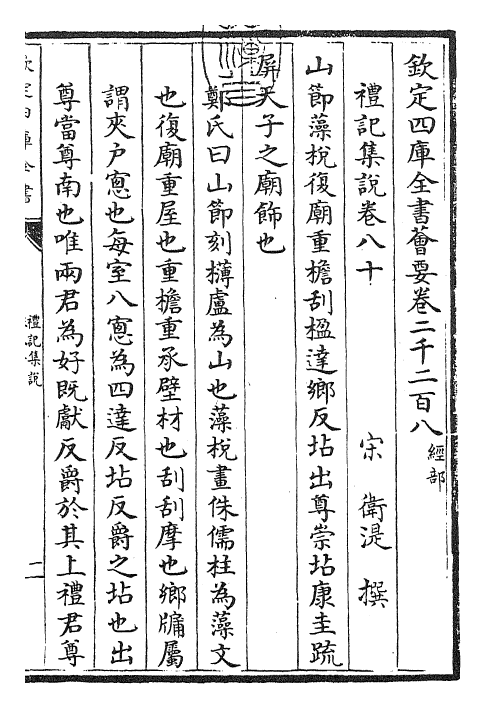 欽定四庫全書薈要卷二千二百八 經部
禮記集說卷八十 宋 衛湜 撰
山節藻梲復廟重檐刮楹達鄉反坫出尊崇坫康圭疏
屏天子之廟飾也
鄭氏曰山節刻欂盧為山也藻梲畫侏儒柱為藻文
也復廟重屋也重檐重承壁材也刮刮摩也鄉牖屬
謂夾户窻也每室八窻為四達反坫反爵之坫也出
尊當尊南也唯兩君為好既獻反爵於其上禮君尊
欽定四庫全書
禮記集說
二